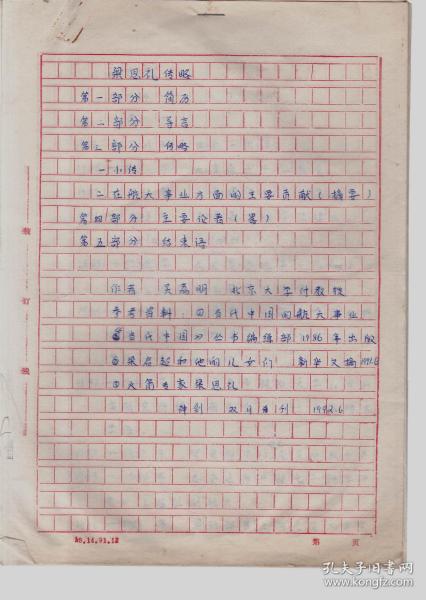 梁思礼传略
第一部分 简历
第二部分 导言
第三部分 传略
一 小传
二 在航天事业方面的主要贡献(摘要)
第四部分 主要论著(略)
第五部分 结束语
作者 吴荔明 北京大学付教授
参考资料: ①当代中国的航天事业
《当代中国》丛书编辑部 1986年出版
②梁启超和他的儿女们 新华文摘 1991.6
③火箭专家梁思礼
神剑 双月刊 1992.6
装
订
线
48.14.91.12
第 页
孔夫子旧书网
www.kongfz.com